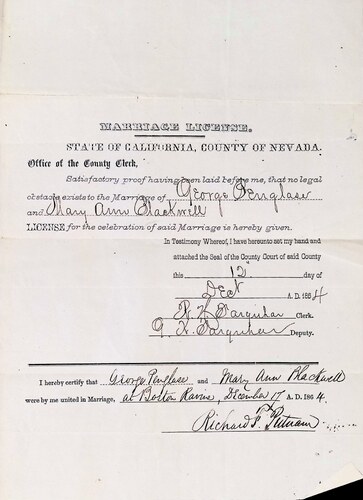 MARRIAGE LICENSE.
STATE OF CALIFORNIA, COUNTY OF NEVADA.
Office of the County Clerk,
Satisfactory proof having been laid before me, that no legal
obstacle exists to the Marriage of George Penglase
and Mary Ann Blackwell
LICENSE for the celebration of said Marriage is hereby given.
In Testimony Whereof, I have hereunto set my hand and
attached the Seal of the County Court of said County
this 12 day of
Dec A. D. 1864
R. H. Farquhar Clerk.
A. H. Farquhar Deputy.
I hereby certify that George Penglase and Mary Ann Blackwell
were by me united in Marriage, at December 17 A. D. 1864.
Richard F. Putnam